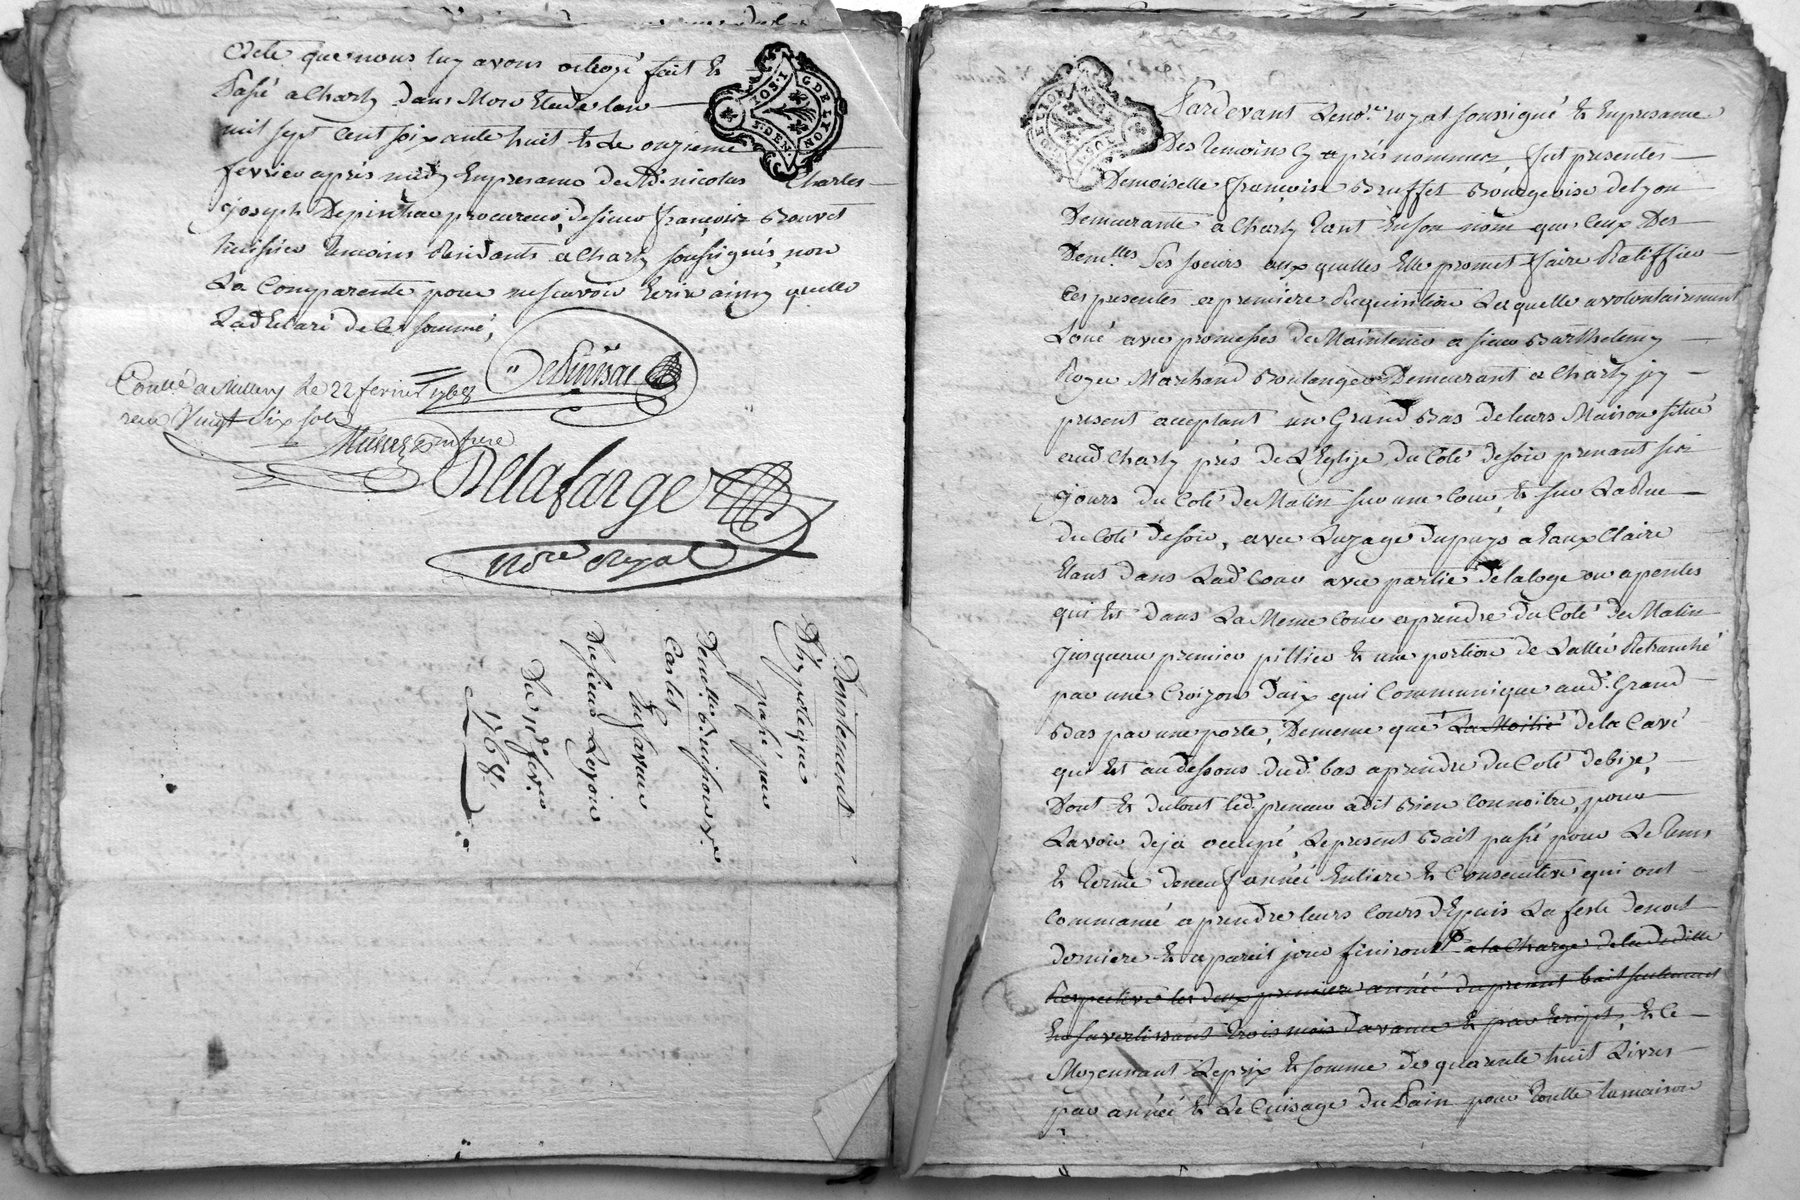 acte que nous luy avons octroyé fait &
passé a Charly dans Mon Etude lan
mil sept cent soixante huit & Le onzieme
fevrier aprés midy En presence de Me. nicolas Charles
joseph Depinssac procureur, de sieur françois Bouvet
huissier temoins Residants a Charly soussignés, non
La Comparente pour ne scavoir Ecrire ainsy quelle
La declaré de ce sommé,
G. DE LYON
DePinssac
Conllé a Millery Le 22 fevrier 1768
recu Vingt Six sols
Delafarge
Nore Royal
Desistement
D'hypoteque
passé par
Carlet
En faveur
Du sieur
Du 11e fevrier
1768
G. DE LYON
Pardevant Le nore. royal soussigné & En presence
Des temoins Cy aprés nommez fut presente
Demoiselle françoise Buffet Bourgeoise de Lyon
Demeurante a Charly tant En son nom que Ceux Des
Demlles Ses soeurs auxquelles Elle promet faire Ratiffier
Ces presentes a premiere Requisition Laquelle a volontairement
Loué avec promesses de Maintenir a sieur Barthelemy
Roger Marchand Boulanger Demeurant a Charly jcy
present acceptant un Grand Bas de leurs Maison situé
aud Charly prés de L'Eglise du Coté de soir prenant ses
jours du Coté de Matin sur une Cour, & sur La Rue
du Coté de soir, avec Luzage du puys a Eaux Claire
Etant dans Lad. Cour avec partie de la loge ou apentes
qui Est dans La Meme Cour a prendre du Coté de Matin
jusquau premier pillier & une portion de Lallée Retranché
par une Croizon daix qui Communique aud. Grand
Bas par une porte, De meme que La Moitié de la Cave
qui Est audessous dud. bas a prendre du Coté de bize,
Dont & du tout led. preneur a dit Bien Connoitre, pour
Lavoir deja occupé, Le present Bail passé pour Le tems
& terme de neuf année Entiere & Consecutive qui ont
Commencé a prendre leurs Cours depuis La feste de noel
derniere & a pareil jour finiront a la Charge de la deditte
Respective les deux premiere année du present bail seulement
En savertissant trois mois davance & par Ecrit, & Ce
Moyennant Le prix & somme de quarante huit Livres
par année, & Le Cuisage du Pain pour toutte la maison